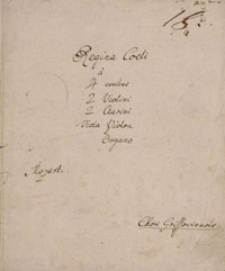 Regina Coeli
à
4 vocibus
2 Violini
2 Clarini
Viola Violon
Organo
Mozart.
Chori